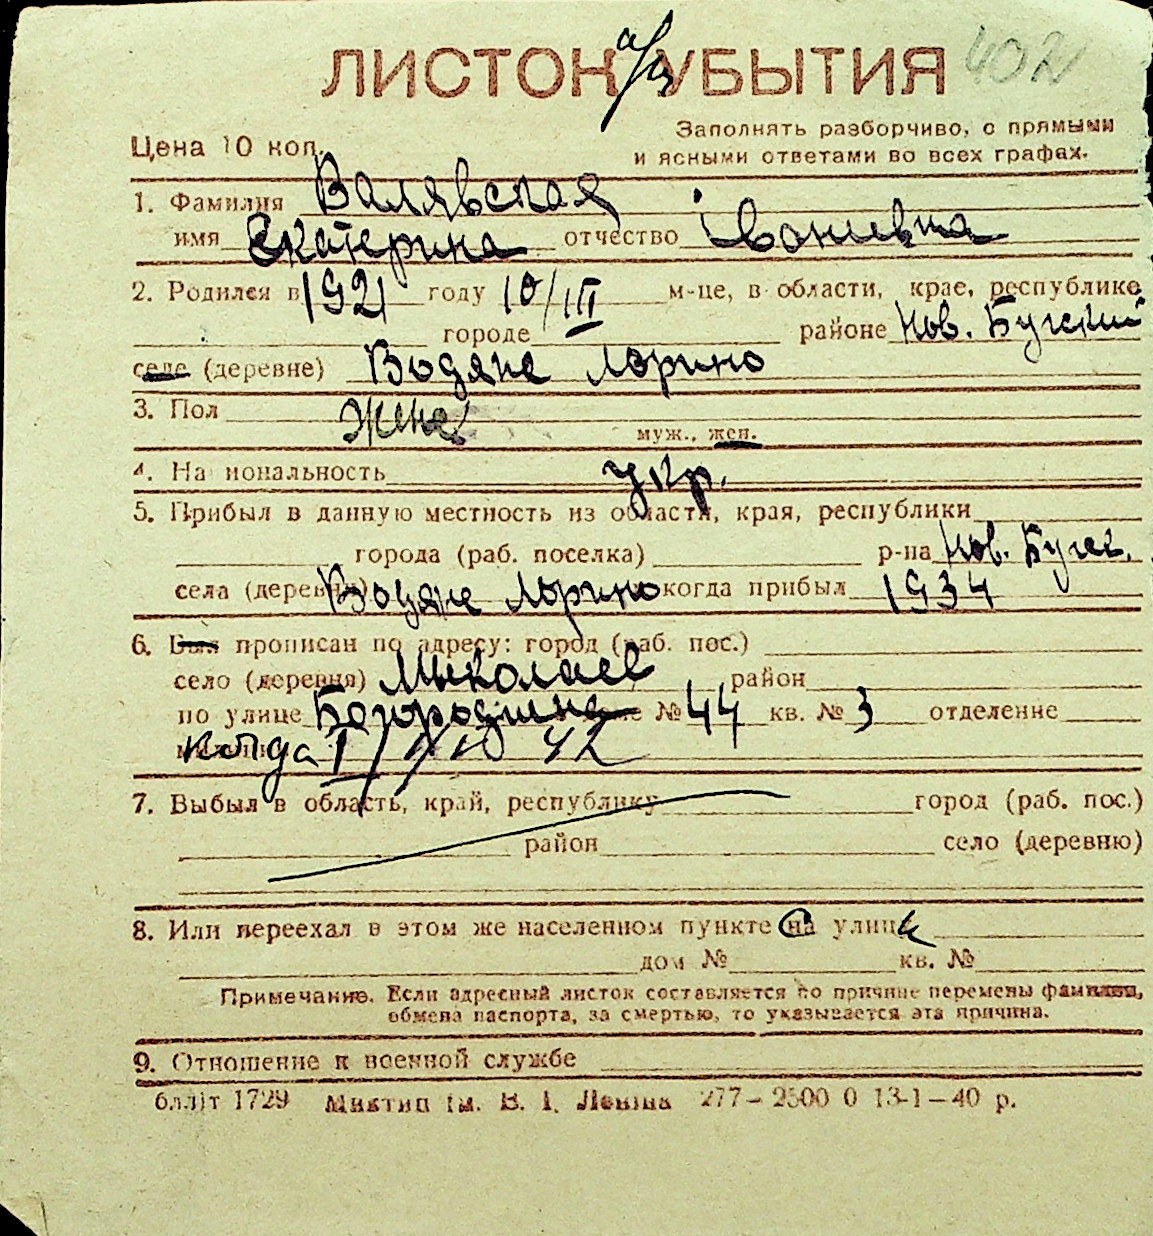 ЛИСТОК УБЫТИЯ 402
Цена 10 коп.
Заполнять разборчиво, с прямыми
и ясными ответами во всех графах.
1. Фамилия Валявская
имя Екатерина отчество Івонивна
2. Родился в 1921 году 10/III м-це, в области, крае, республике
городе районе Нов. Бугский
селе (деревне) Водяне Лорино
3. Пол Жен
муж., жен.
4. Национальность укр.
5. Прибыл в данную местность из области, края, республики
города (раб. поселка) р-на Нов. Буге.
села (деревни) Водяне Лорино когда прибыл 1934
6. Был прописан по адресу: город (раб. пос.)
село (деревня) Миколаев район
по улице № 44 кв. № 3 отделение
Когда 42
7. Выбыл в область, край, республику город (раб. пос.)
район село (деревню)
8. Или переехал в этом же населенном пункте на улицу
дом № кв. №
Примечание. Если адресный листок составляется по причине перемены фамилии,
обмена паспорта, за смертью, то указывается эта причина.
9. Отношение к военной службе
блліт 1729 Миктип ім. В. І. Леніна 277–2500 0 13-1–40 р.